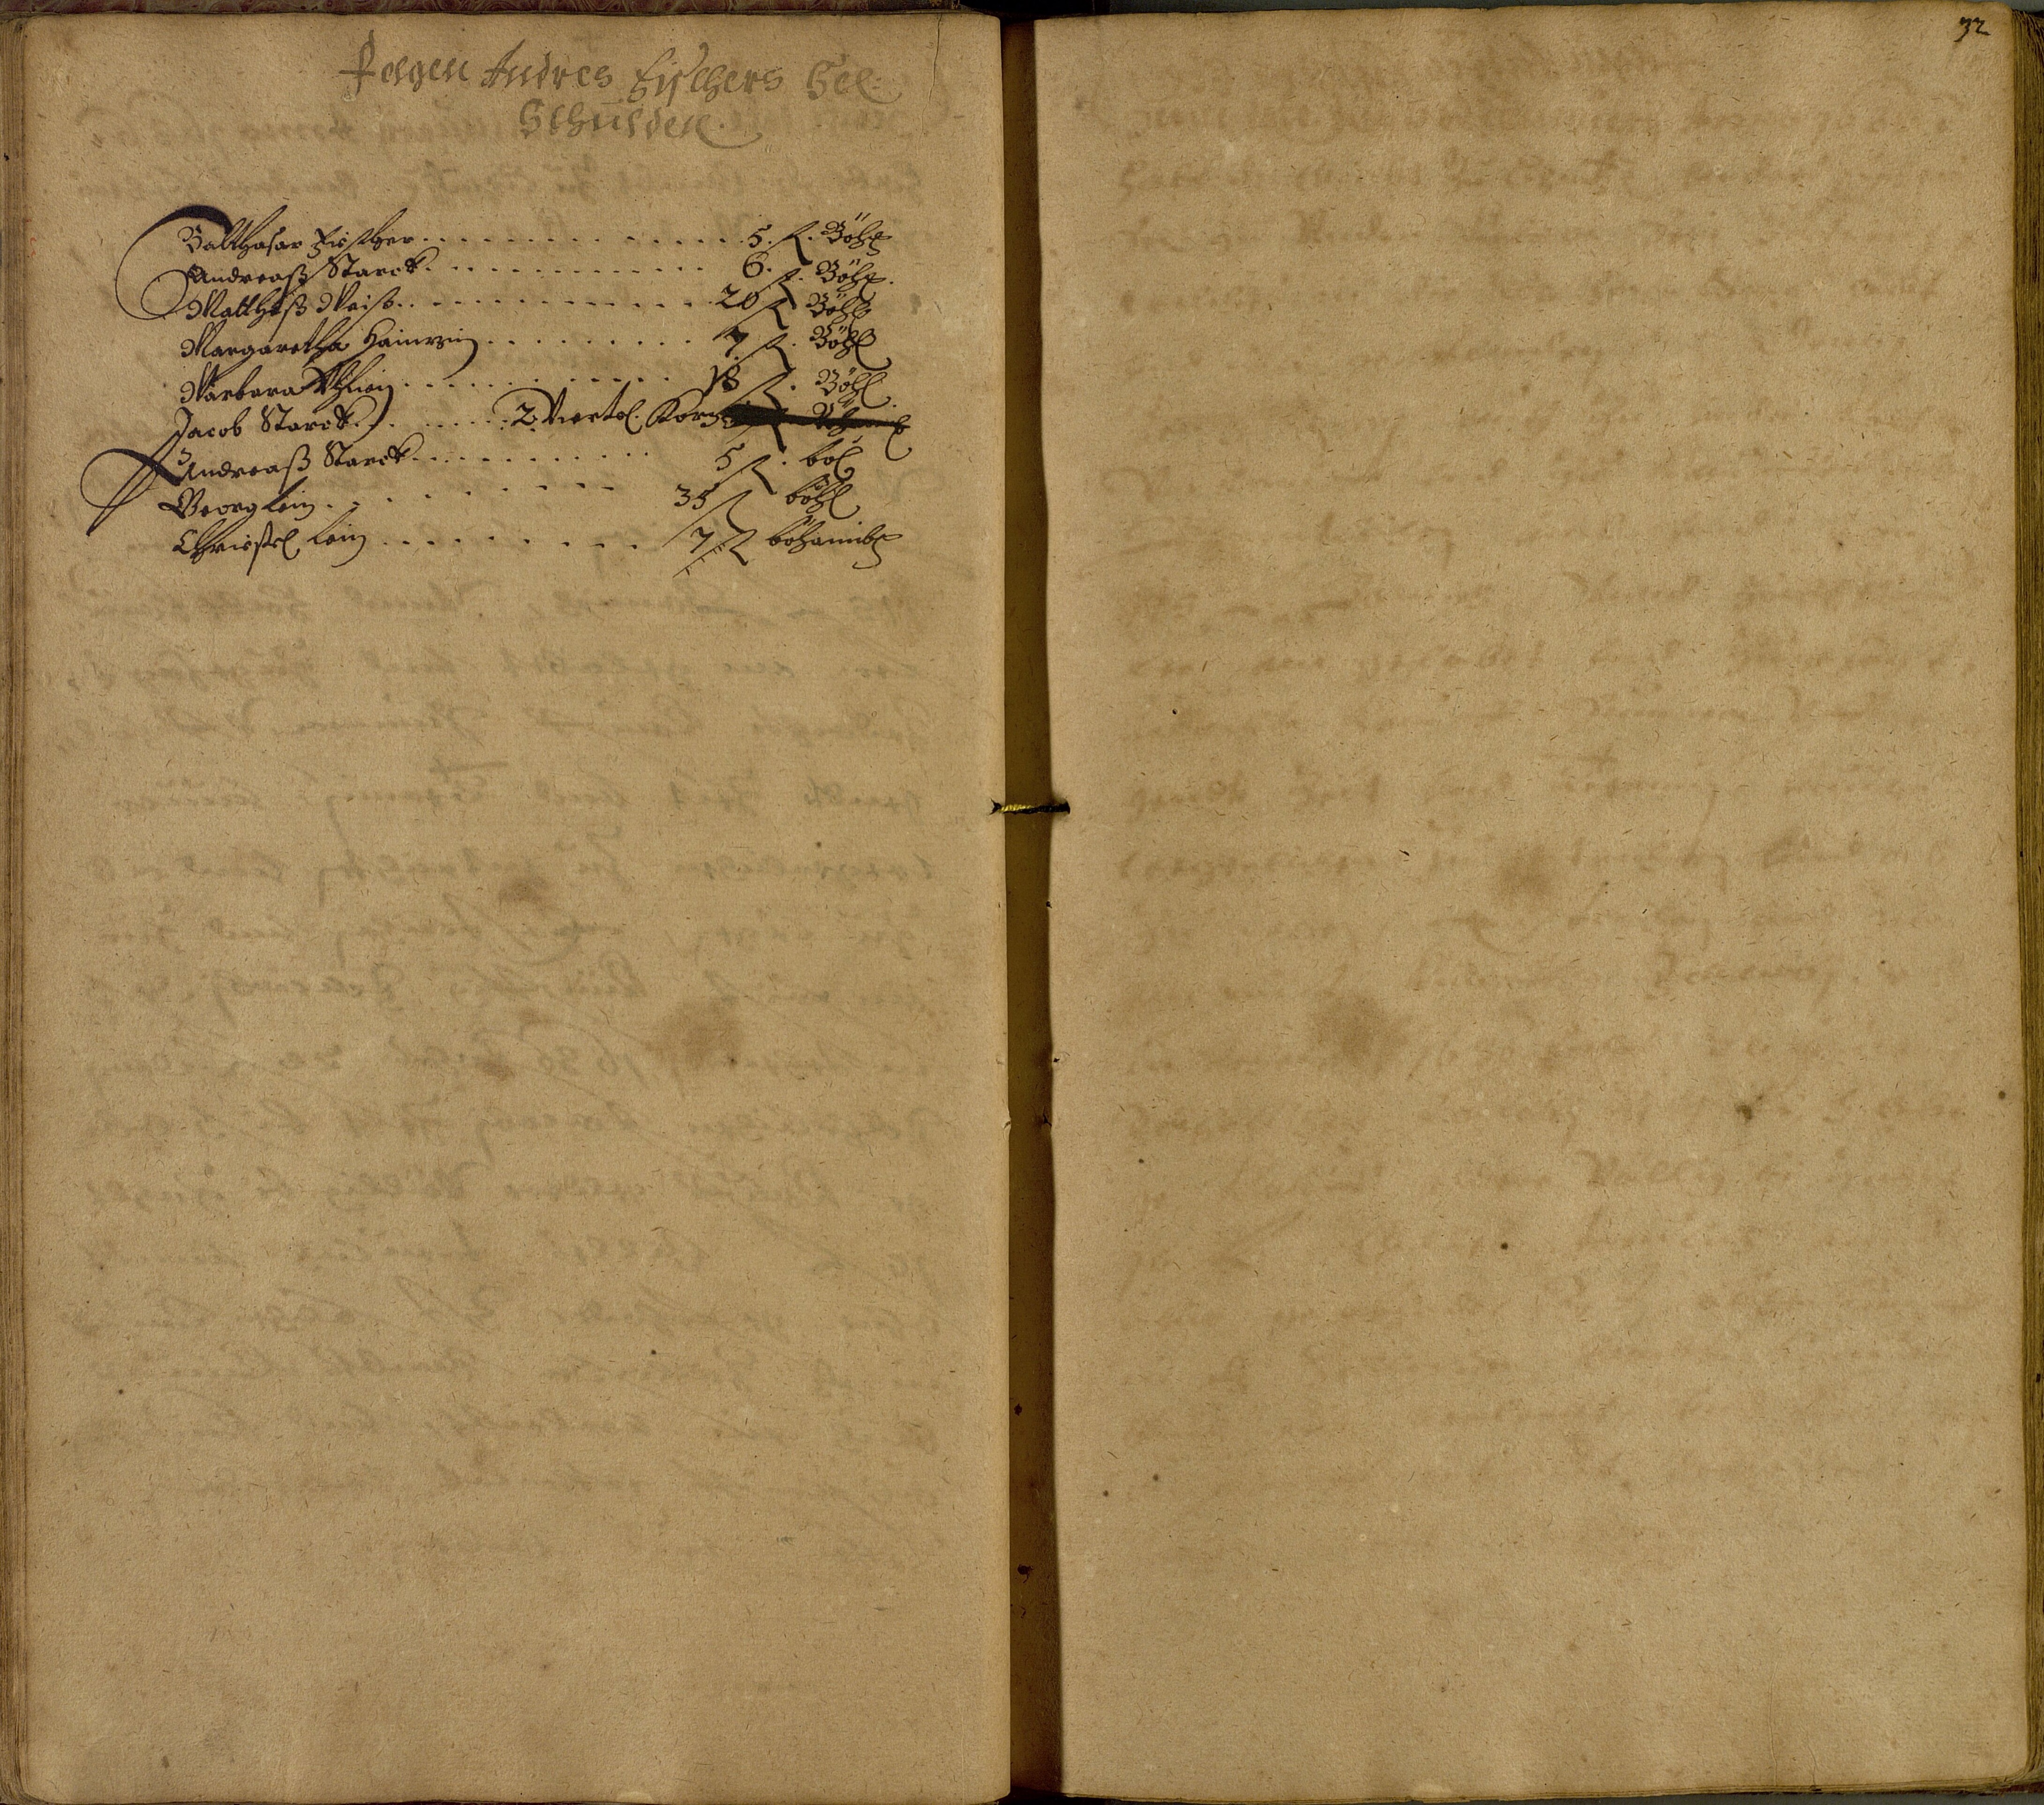 32
Folgen Andres Fischers Sel:
Schulden.
Balthasar Fischer. . . . . . . . . . . . . 5. fl. Böhm
Andreaß Starck. . . . . . . . . . . . . 6. fl. Böhm.
Mattheß Weiß. . . . . . . . . . . . . 20 fl Böhl
Margaretha . . . . . . . . . 7. fl. Böhl
Barbara . . . . . . . . . . . 18 fl. Böhl.
Jacob Starck. . . . . . . 2. Viertel. Korn
Andreaß Starck. . . . . . . . . . . 5 fl. böl
Georg Lein. . . . . . . . . . 35 fl böhl
Christel Lein . . . . . . . . . 7 fl böhamibs